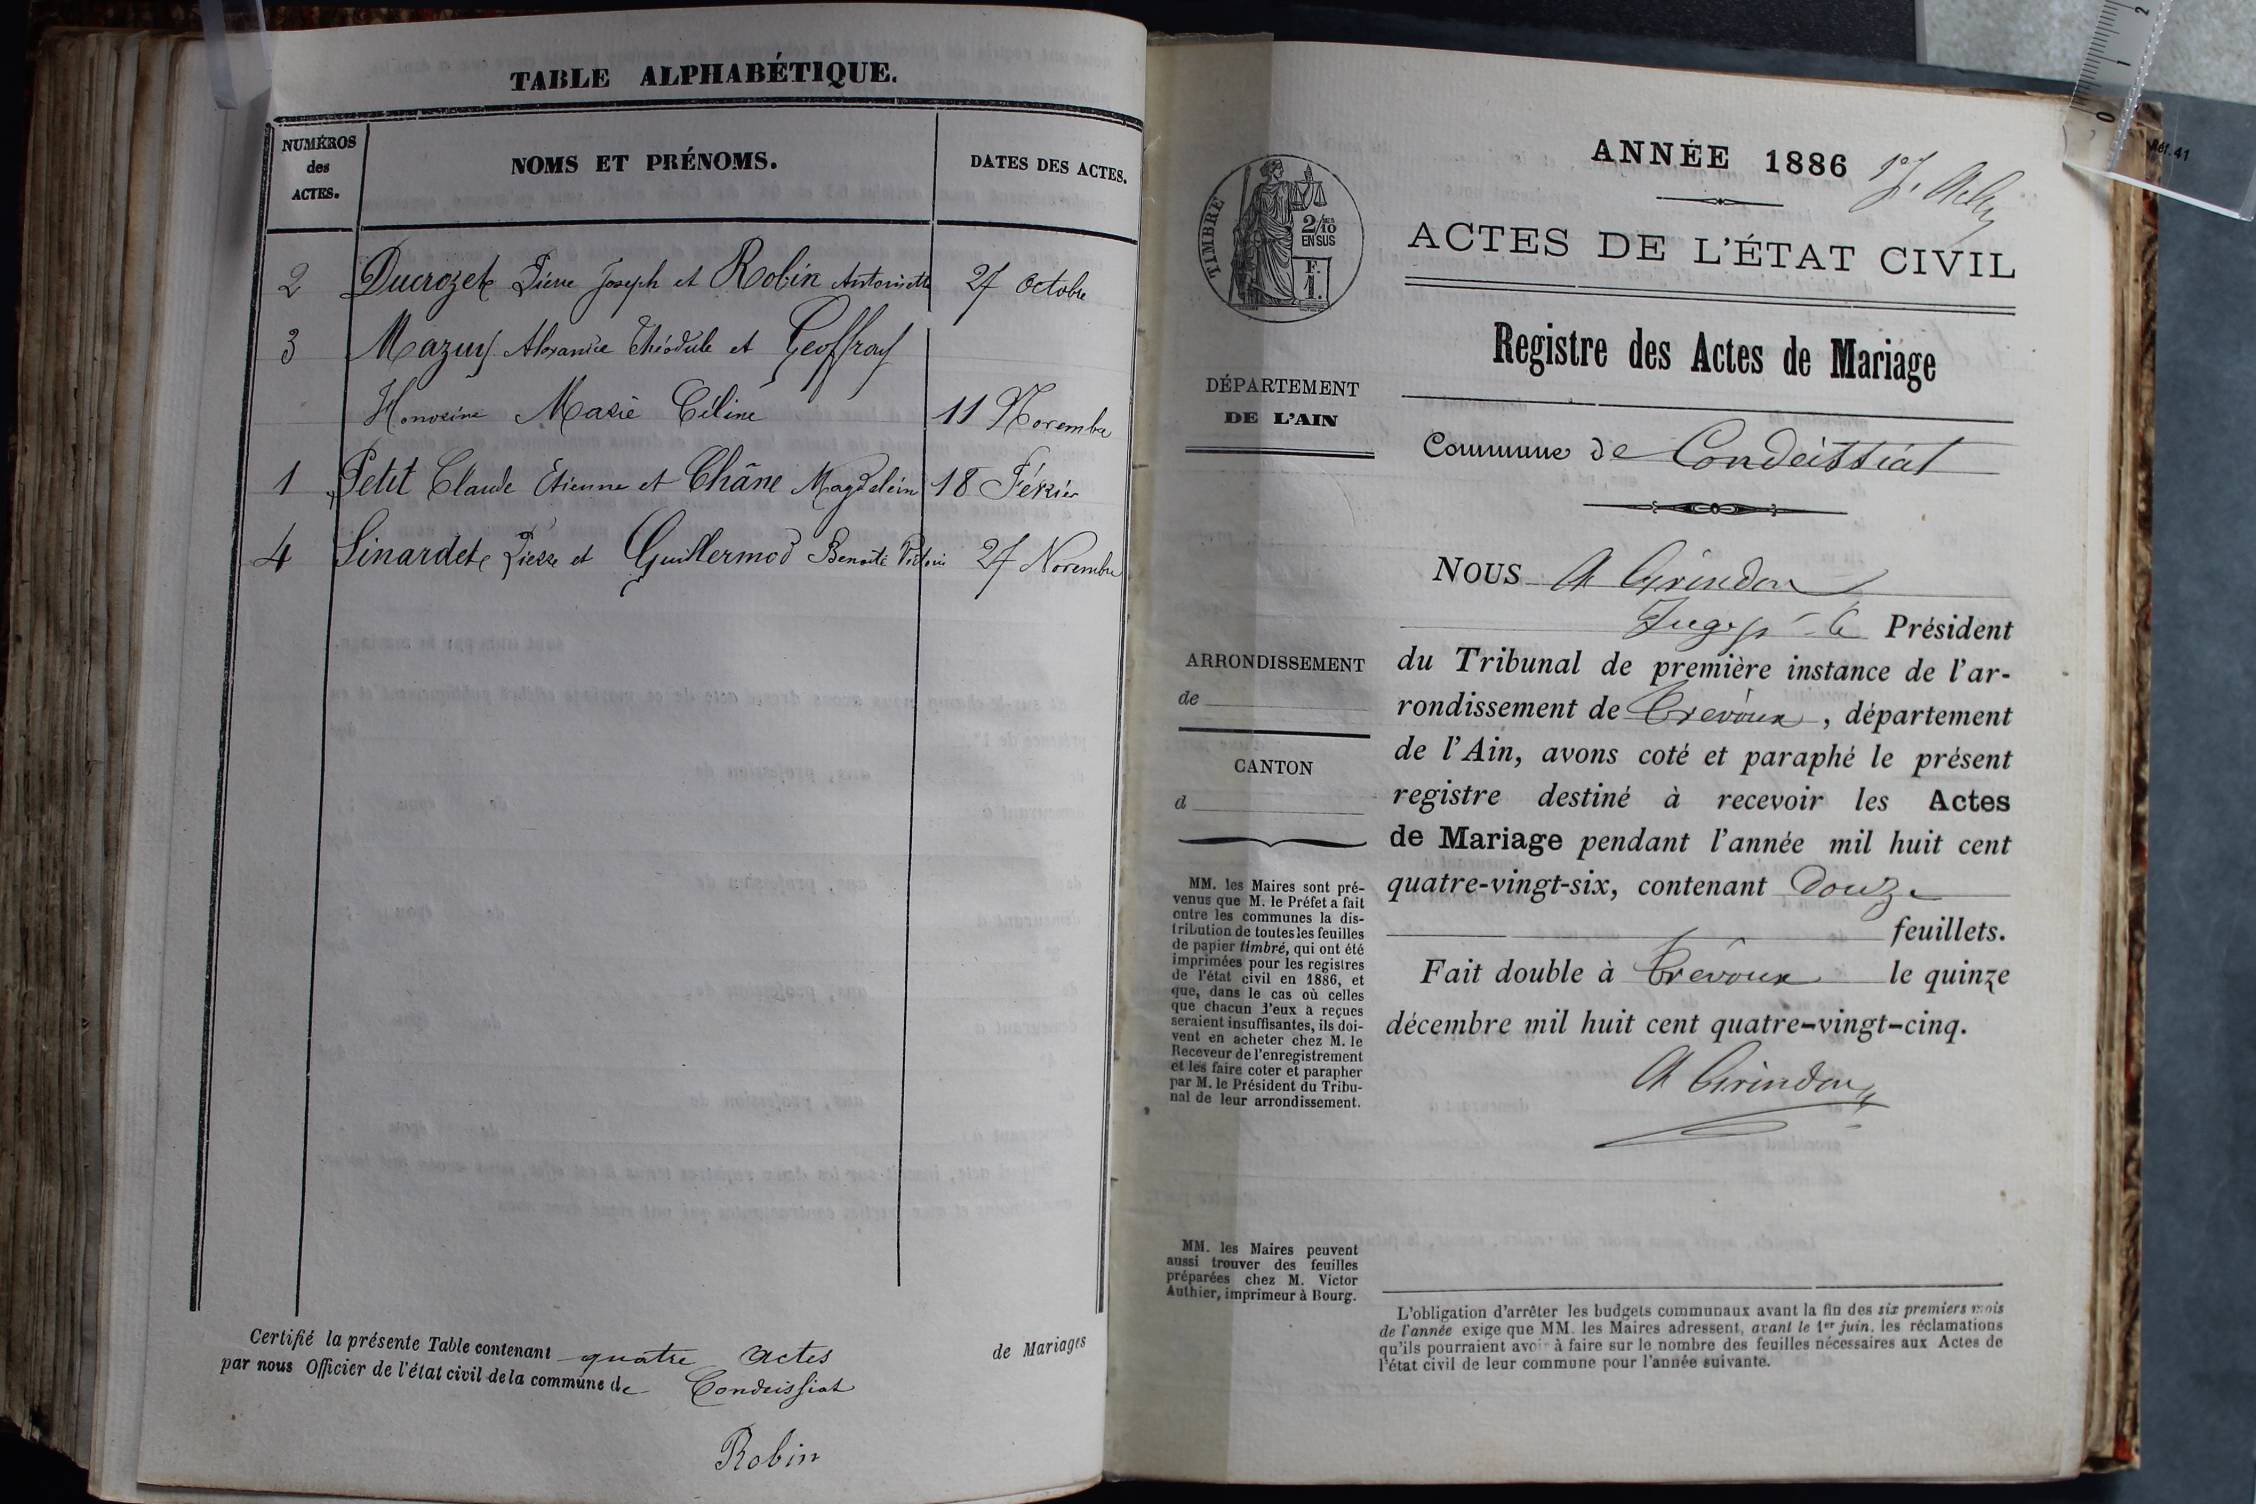 TABLE ALPHABÉTIQUE.
NUMÉROS
des
ACTES.
NOMS ET PRÉNOMS.
DATES DES ACTES.
2 Ducrozet Pierre Joseph et Robin Antoinette 27 Octobre
3 Mazuy Alexandre Théodule et Geoffray
Honorine Marie Céline 11 Novembre
1 Petit Claude Etienne et Châne Magdeleine 18 Février
4 Sinardet Pierre et Guillermod Benoite 27 Novembre
Certifié la présente Table contenant quatre actes de Mariages
par nous Officier de l'état civil de la commune de Condeissiat
Robin
Réf. 41
0 1 2
TIMBRE
2/10
EN SUS
F.
1.
DÉPARTEMENT
DE L'AIN
ARRONDISSEMENT
de
CANTON
d
MM. les Maires sont pré-
venus que M. le Préfet a fait
entre les communes la dis-
tribution de toutes les feuilles
de papier timbré, qui ont été
imprimées pour les registres
de l'état civil en 1886, et
que, dans le cas où celles
que chacun d'eux a reçues
seraient insuffisantes, ils doi-
vent en acheter chez M. le
Receveur de l'enregistrement
et les faire coter et parapher
par M. le Président du Tribu-
nal de leur arrondissement.
MM. les Maires peuvent
aussi trouver des feuilles
préparées chez M. Victor
Authier, imprimeur à Bourg.
ANNÉE 1886
ACTES DE L'ÉTAT CIVIL
Registre des Actes de Mariage
Commune de Condeissiat
NOUS A Grindon
Juge pr le Président
du Tribunal de première instance de l'ar-
rondissement de Trévoux, département
de l'Ain, avons coté et paraphé le présent
registre destiné à recevoir les Actes
de Mariage pendant l'année mil huit cent
quatre-vingt-six, contenant Douze
feuillets.
Fait double à Trévoux le quinze
décembre mil huit cent quatre-vingt-cinq.
A Grindon
L'obligation d'arrêter les budgets communaux avant la fin des six premiers mois
de l'année exige que MM. les Maires adressent, avant le 1er juin, les réclamations
qu'ils pourraient avoir à faire sur le nombre des feuilles nécessaires aux Actes de
l'état civil de leur commune pour l'année suivante.